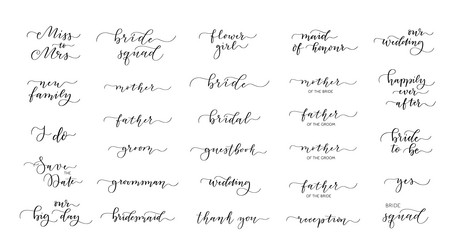 Miss
to
Mrs
bride
squad
flower
girl
maid
of honour
our
wedding
new
family
mother
bride
mother
OF THE BRIDE
happily
ever
after
I do
father
bridal
father
OF THE GROOM
bride
to be
groom
guestbook
mother
OF THE GROOM
Save
THE
Date
groomsman
wedding
father
OF THE BRIDE
yes
our
big day
bridesmaid
thank you
reception
BRIDE
squad